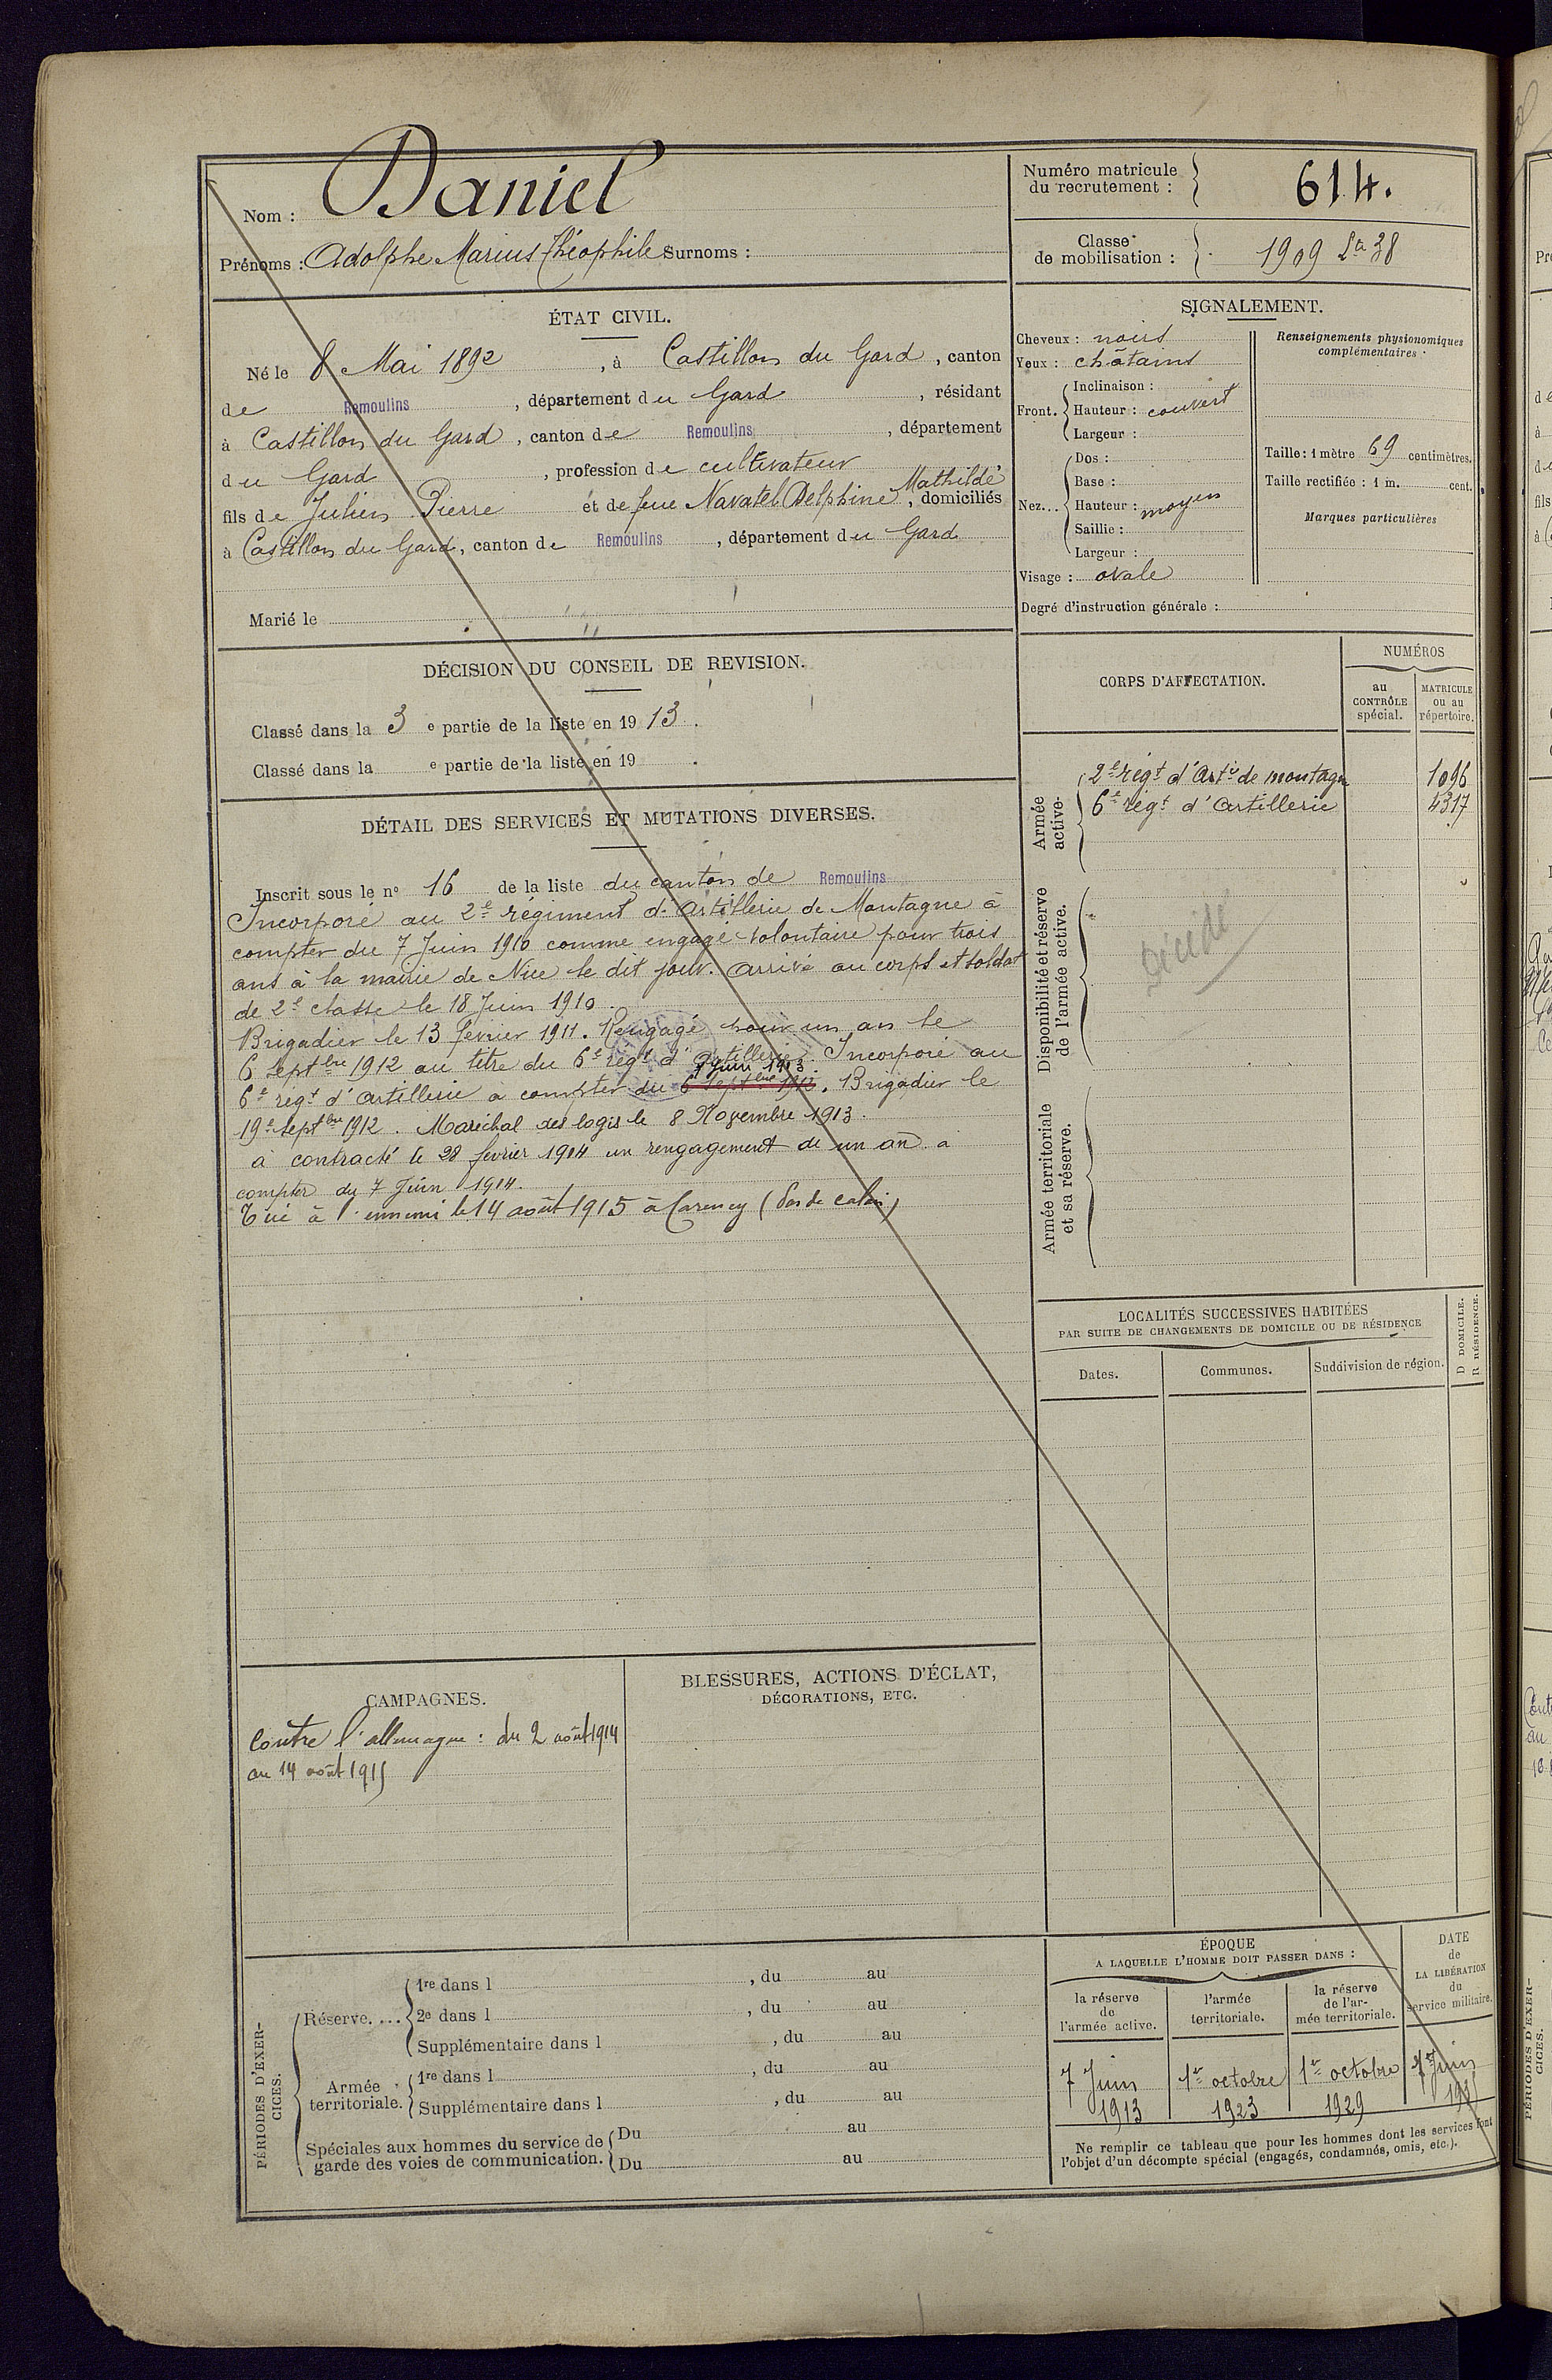 Nom : Daniel
Prénoms : Adolphe Marius Théophile Surnoms :
Numéro matricule
du recrutement :
614.
Classe
de mobilisation :
1909
ÉTAT CIVIL.
Né le 8 Mai 1892, à Castillon du Gard, canton
de Remoulins, département du Gard, résidant
à Castillon du Gard, canton de Remoulins, département
du Gard, profession de cultivateur
Mathilde
fils de Julien Pierre et de feue Navatel Delphine, domiciliés
à Castillon du Gard, canton de Remoulins, département du Gard
Marié le "
SIGNALEMENT.
Cheveux : noirs
Yeux : châtains
Front.
Inclinaison :
Hauteur : couvert
Largeur :
Nez...
Dos :
Base :
Hauteur : moyen
Saillie :
Largeur :
Visage : ovale
Renseignements physionomiques
complémentaires :
Taille : 1 mètre 69 centimètres.
Taille rectifiée : 1 m. cent.
Marques particulières
Degré d'instruction générale :
DÉCISION DU CONSEIL DE REVISION.
Classé dans la 3 e partie de la liste en 1913.
Classé dans la e partie de la liste en 19 .
CORPS D'AFFECTATION.
NUMÉROS
au
CONTRÔLE
spécial.
MATRICULE
ou au
répertoire.
Armée
active.
2e régt d'Artie de montagne 1096
6e régt d'Artillerie 4317
Disponibilité et réserve
de l'armée active.
Décédé
Armée territoriale
et sa réserve.
DÉTAIL DES SERVICES ET MUTATIONS DIVERSES.
Inscrit sous le no 16 de la liste du canton de Remoulins
Incorporé au 2e régiment d'Artillerie de Montagne à
compter du 7 Juin 1910 comme engagé volontaire pour trois
ans à la mairie de Nice le dit jour. Arrivé au corps et soldat
de 2e classe le 18 Juin 1910.
Brigadier le 13 février 1911. Rengagé pour un an le
6 Septbre 1912 au titre du 6e régt d'Artillerie. Incorporé au
7 Juin 1913
6e régt d'Artillerie à compter du 6 Septbre 1912. Brigadier le
19 Septbre 1912. Maréchal des logis le 8 Novembre 1913.
à contracté le 28 février 1914 un rengagement de un an à
compter du 7 Juin 1914.
Tué à l'ennemi le 14 août 1915 à Carency (Pas de Calais)
LOCALITÉS SUCCESSIVES HABITÉES
PAR SUITE DE CHANGEMENTS DE DOMICILE OU DE RÉSIDENCE
Dates.
Communes.
Subdivision de région.
D DOMICILE.
R RÉSIDENCE.
CAMPAGNES.
Contre l'allemagne : du 2 août 1914
au 14 août 1915
BLESSURES, ACTIONS D'ÉCLAT,
DÉCORATIONS, ETC.
PÉRIODES D'EXER-
CICES.
Réserve....
1re dans l , du au
2e dans l , du au
Supplémentaire dans l , du au
Armée
territoriale.
1re dans l , du au
Supplémentaire dans l , du au
Spéciales aux hommes du service de
garde des voies de communication.
Du au
Du au
ÉPOQUE
A LAQUELLE L'HOMME DOIT PASSER DANS :
la réserve
de
l'armée active.
l'armée
territoriale.
la réserve
de l'ar-
mée territoriale.
DATE
de
LA LIBÉRATION
du
service militaire.
7 Juin
1913
1er octobre
1923
1er octobre
1929
Ne remplir ce tableau que pour les hommes dont les services font
l'objet d'un décompte spécial (engagés, condamnés, omis, etc.).
PÉRIODES D'EXER-
CICES.